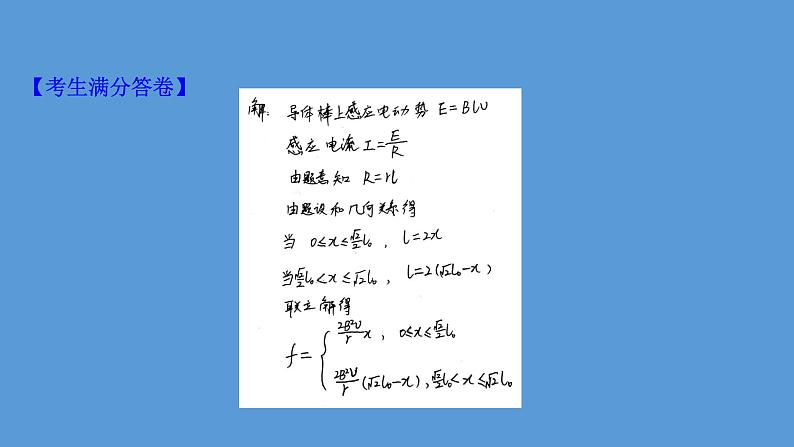 【考生满分答卷】
解: 导体棒上感应电动势 E=Blv
感应电流 I=E/R
由题意知 R=rl
由题设和几何关系得
当 0≤x≤√2/2 l₀ , l=2x
当√2/2 l₀<x≤√2l₀ , l=2(√2l₀-x)
联立解得
f= { 2B²v/r x , 0≤x≤√2/2 l₀
2B²v/r (√2l₀-x) , √2/2 l₀<x≤√2l₀